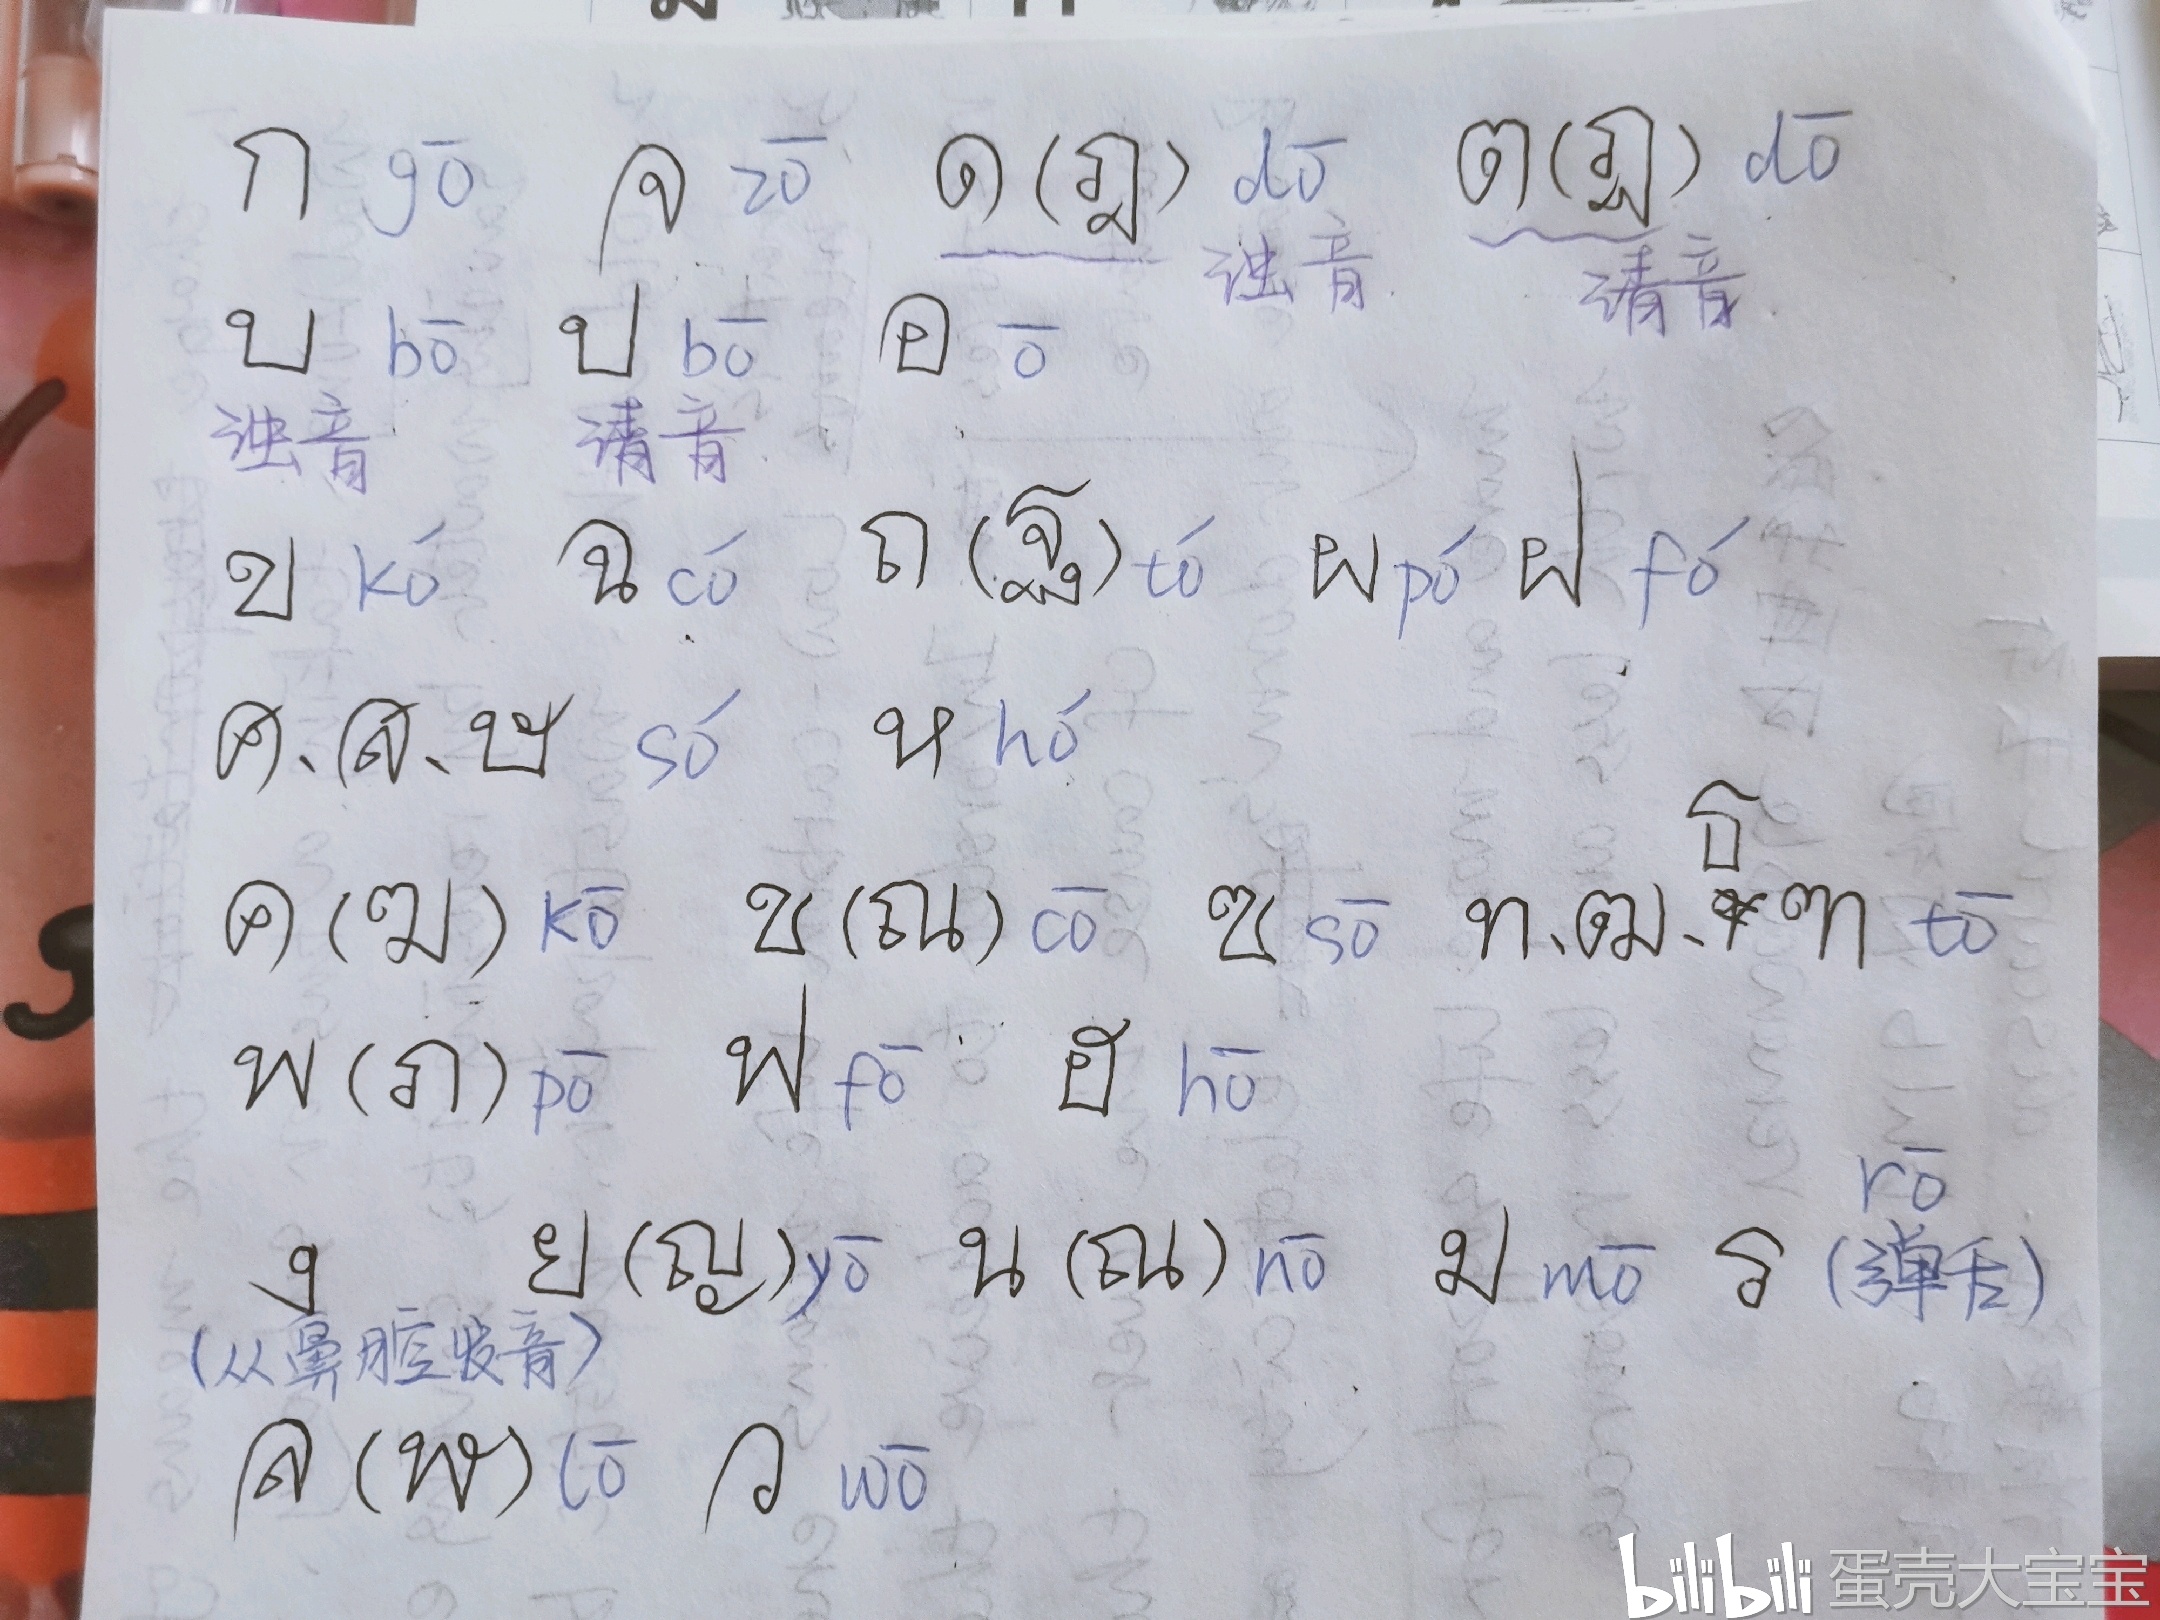 ก gō จ zō ด(ฎ) dō ต(ฏ) dō
浊音 请音
บ bō ป bō อ ō
浊音 请音
ข kó ฉ có ถ(ฐ) tó ผ pó ฝ fó
ศ、ส、ษ só ห hó
ธ
ค(ฆ) kō ช(ฌ) cō ซ sō ท、ฒ、ฑ tō
พ(ภ) pō ฟ fō ฮ hō
rō
ง ย(ญ) yō น(ณ) nō ม mō ร (弹舌)
(从鼻腔发音)
ล(ฬ) lō ว wō
bilibili 蛋壳大宝宝